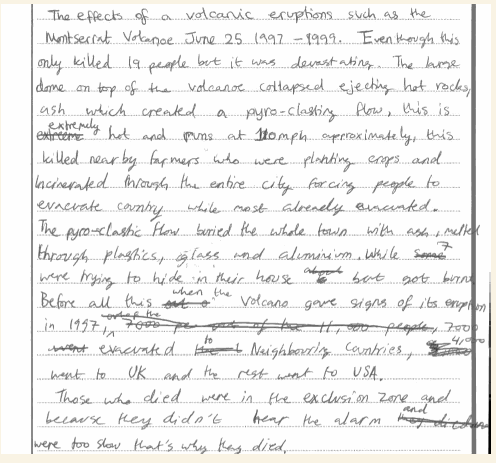 The effects of a volcanic eruptions such as the
Montserrat Volcanoe June 25 1997 - 1999. Even though this
only killed 19 people but it was devastating. The large
dome on top of the volcanoe collapsed ejecting hot rocks,
ash which created a pyro-clasting flow, this is
extremely hot and runs at 110mph approximately, this
killed nearby farmers who were planting crops and
Incinerated through the entire city forcing people to
evacuate country while most already evacuated.
The pyro-clastic flow buried the whole town with ash, melted
through plastics, glass and aluminium. While 7
were trying to hide in their house but got burnt
Before all this when the Volcano gave signs of its eruption
in 1997, 7000
evacuated to Neighbouring Countries, 4,000
went to UK and the rest went to USA.
Those who died were in the exclusion zone and
because they didn't hear the alarm and
were too slow that's why they died.